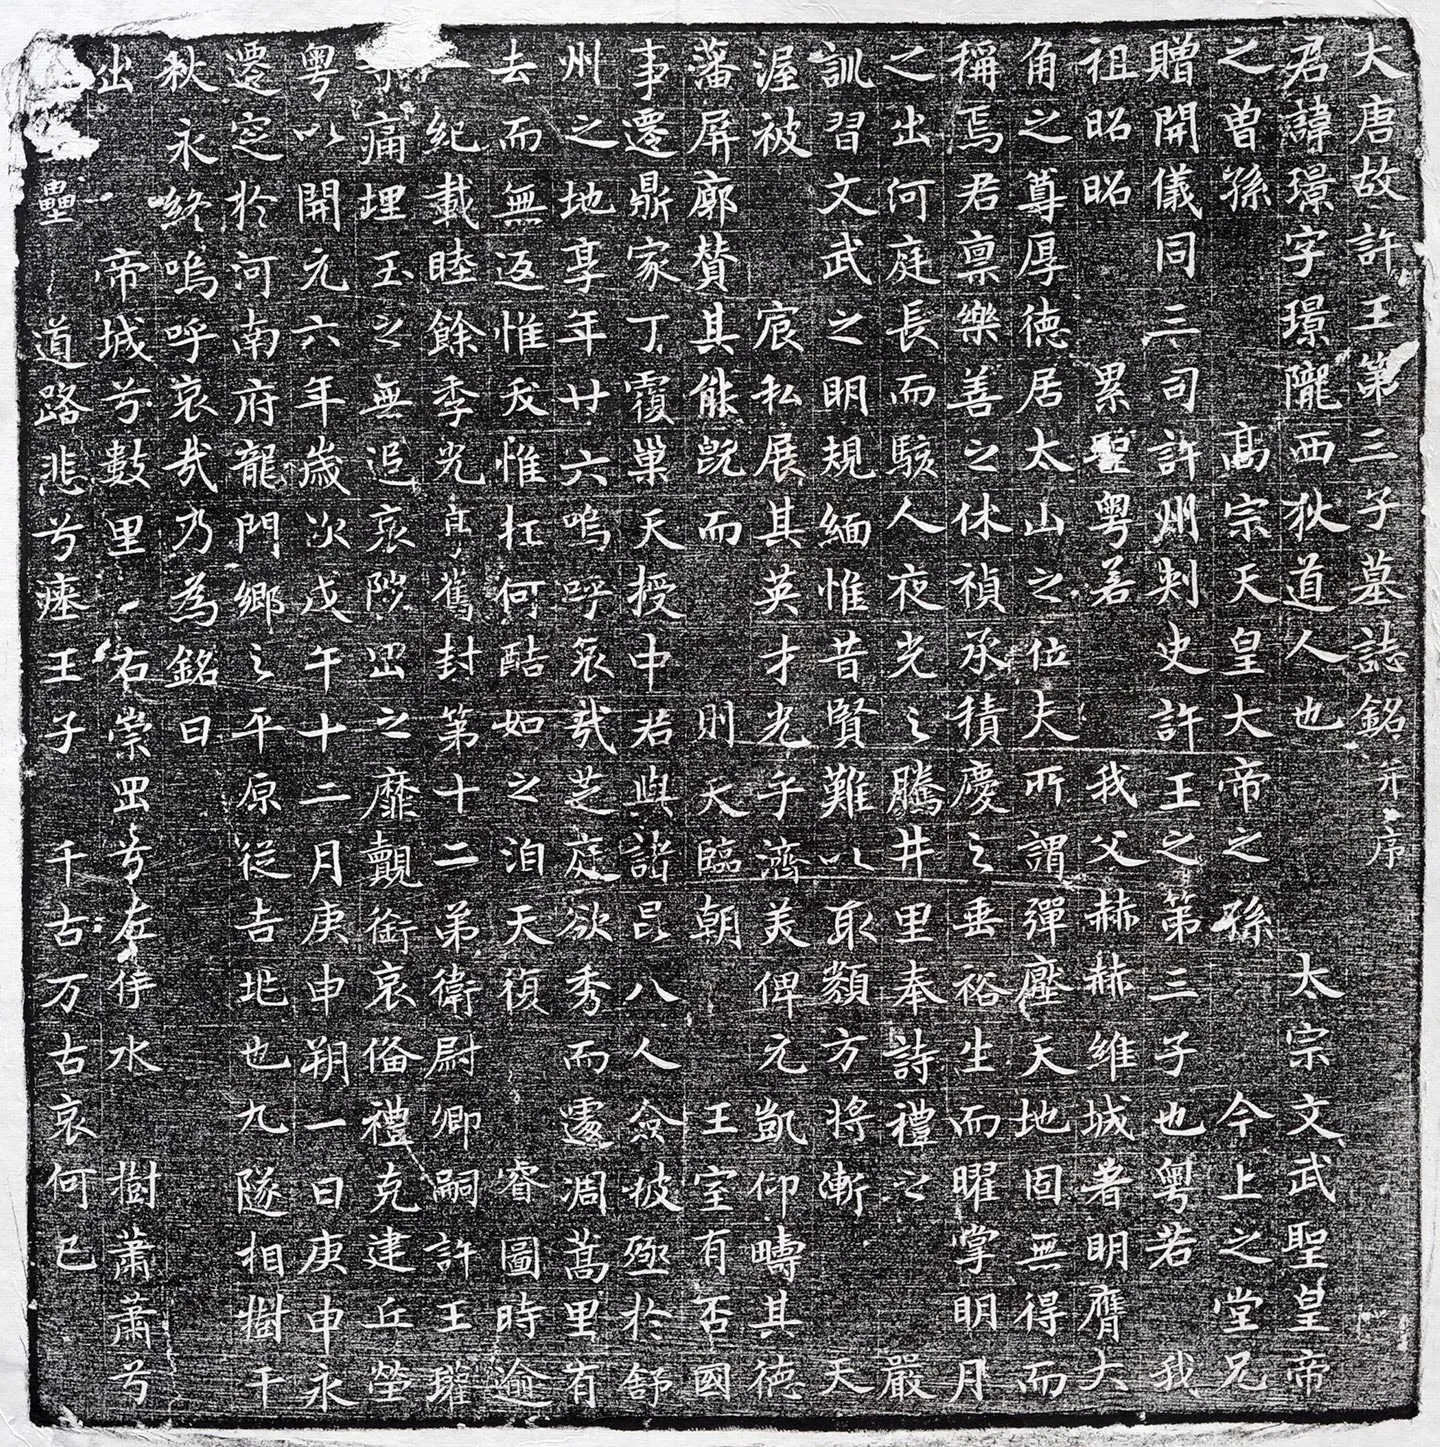 大唐故許王第三子墓誌銘并序
君諱璟字璟隴西狄道人也 太宗文武聖皇帝
之曾孫 高宗天皇大帝之孫 今上之堂兄
贈開儀同三司許州刺史許王之第三子也粤若我
祖昭昭 累聖粤若 我父赫赫維城著明膺大
角之尊厚德居太山之位夫所謂彈壓天地固無得而
稱焉君禀樂善之休禎承積慶之垂裕生而曜掌明月
之出何庭長而駭人夜光之騰井里奉詩禮之 嚴
訓習文武之明規緬惟昔賢難以取類方將漸 天
渥被 宸私展其英才光乎濟美俾元凱仰疇其德
藩屏廓贊其能既而 則天臨朝 王室有否國
事遷鼎家丁覆巢天授中若與諸昆八人僉被殛於舒
州之地享年廿六嗚呼哀哉芝庭欲秀而遽凋蒿里有
去而無返惟我惟抂何酷如之洎天復 睿圖時逾
一紀載睦餘季光 舊封第十二弟衛尉卿嗣許王瓘
痛埋玉之無追哀陟岵之靡覿銜哀偹禮克建丘塋
粤以開元六年歲次戊午十二月庚申朔一日庚申永
遷窆於河南府龍門鄉之平原從吉地也九隧相樹千
秋永終嗚呼哀哉乃為銘曰
出 帝城兮數里 右崇罡兮左伊水 樹蕭蕭兮
壘 道路悲兮瘞王子 千古万古哀何已